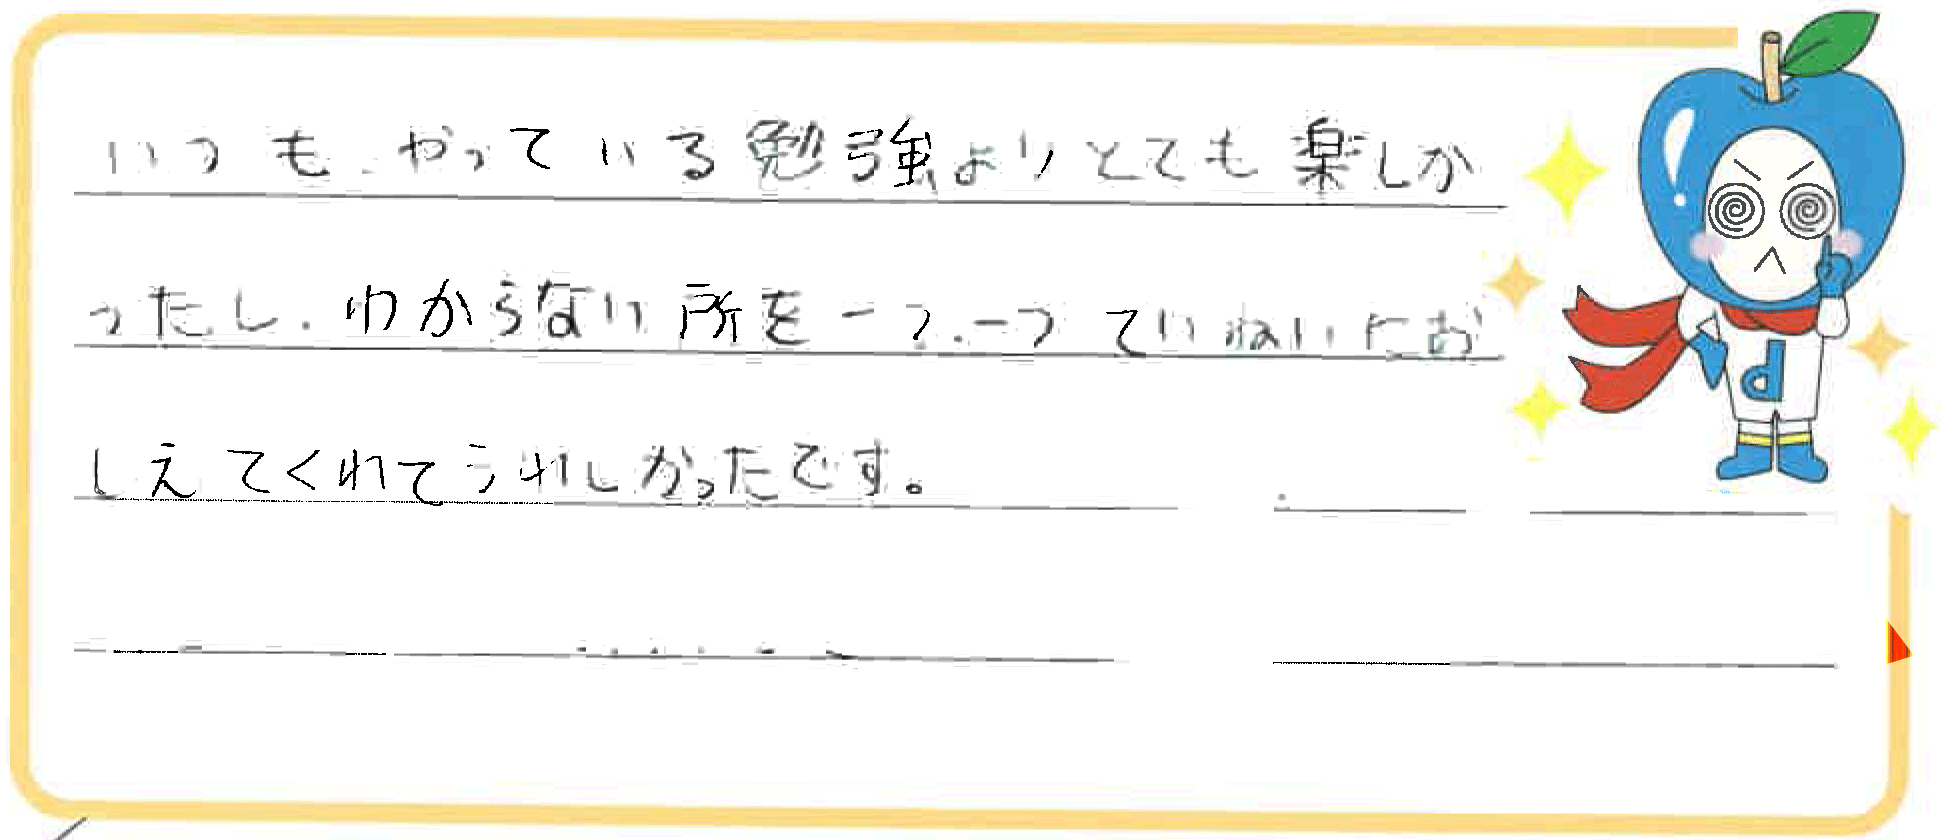 いつもやっている勉強よりとても楽しか
ったし、わからない所を一つ一つていねいにお
しえてくれてうれしかったです。
d